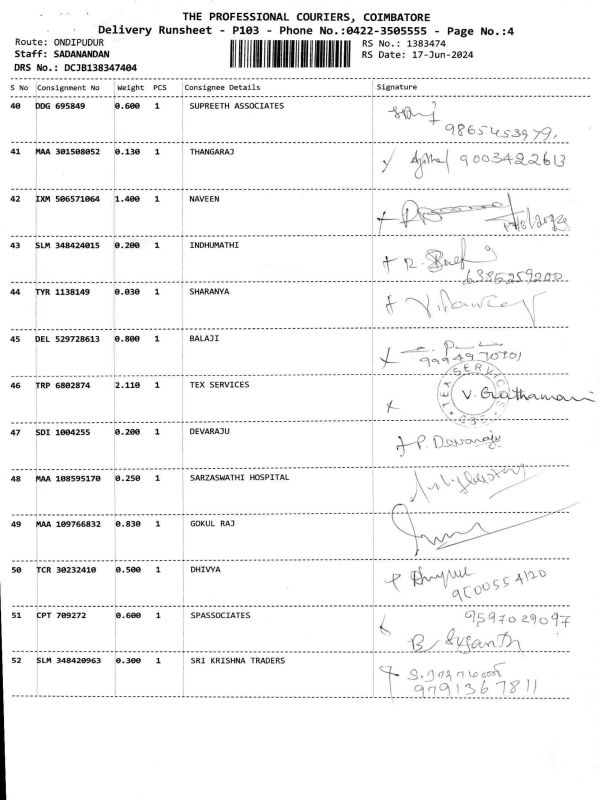 THE PROFESSIONAL COURIERS, COIMBATORE
Delivery Runsheet - P103 - Phone No.:0422-3505555 - Page No.:4
Route: ONDIPUDUR RS No.: 1383474
Staff: SADANANDAN RS Date: 17-Jun-2024
DRS No.: DCJB138347404
S No Consignment No Weight PCS Consignee Details Signature
40 DDG 695849 0.600 1 SUPREETH ASSOCIATES
9865453979.
41 MAA 301508052 0.130 1 THANGARAJ 9003422613
42 IXM 506571064 1.400 1 NAVEEN
43 SLM 348424015 0.200 1 INDHUMATHI
6385259200
44 TYR 1138149 0.030 1 SHARANYA
45 DEL 529728613 0.800 1 BALAJI
9994970701
46 TRP 6802874 2.110 1 TEX SERVICES
TEX SERVICES
V. Geethamani
47 SDI 1004255 0.200 1 DEVARAJU P. Devaraju
48 MAA 108595170 0.250 1 SARZASWATHI HOSPITAL
49 MAA 109766832 0.830 1 GOKUL RAJ
50 TCR 30232410 0.500 1 DHIVYA
9500554120
51 CPT 709272 0.600 1 SPASSOCIATES 9597029097
B Suganth
52 SLM 348420963 0.300 1 SRI KRISHNA TRADERS
9791367811